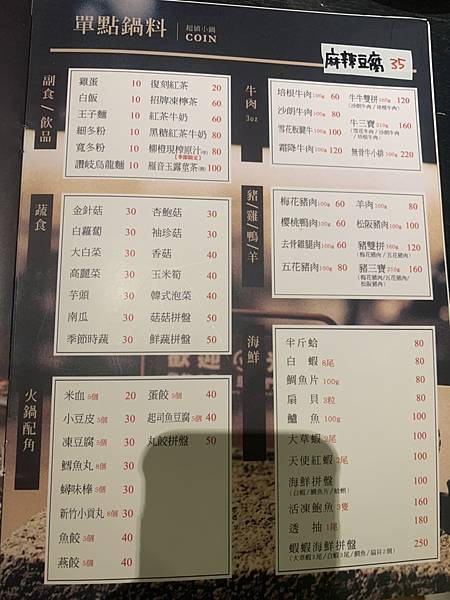 單點鍋料
超鑄小鍋
COIN
麻辣豆腐 35
副食/飲品
雞蛋 10
白飯 10
王子麵 10
細冬粉 10
寬冬粉 10
讚岐烏龍麵 10
復刻紅茶 20
招牌凍檸茶 60
紅茶牛奶 60
黑糖紅茶牛奶 80
柳橙現榨原汁 80
【季節限定】
雁音玉露莖茶 100
牛肉
3oz
培根牛肉100g 60
沙朗牛肉100g 60
雪花板腱牛100g 60
霜降牛肉100g 100
牛牛雙拼160g 120
(沙朗牛肉/培根牛肉)
牛三寶210g 160
(雪花牛肉/沙朗牛肉/
培根牛肉)
無骨牛小排100g 220
蔬食
金針菇 30
白蘿蔔 30
大白菜 30
高麗菜 30
芋頭 30
南瓜 30
季節時蔬 30
杏鮑菇 30
袖珍菇 30
香菇 40
玉米筍 40
韓式泡菜 40
菇菇拼盤 50
鮮蔬拼盤 50
豬/雞/鴨/羊
梅花豬肉100g 60
櫻桃鴨肉100g 60
去骨雞腿肉100g 60
五花豬肉100g 80
羊肉100g 80
松阪豬肉100g 100
豬雙拼160g 120
(梅花豬肉/五花豬肉)
豬三寶210g 160
(梅花豬肉/五花豬肉/
松阪豬肉)
火鍋配角
米血5個 20
小豆皮5個 30
凍豆腐5個 30
鱈魚丸8個 30
蟳味棒5個 30
新竹小貢丸8個 30
魚餃5個 40
燕餃5個 40
蛋餃5個 40
起司魚豆腐5個 40
丸餃拼盤 50
海鮮
半斤蛤 80
白蝦8尾 80
鯛魚片100g 80
扇貝3粒 80
鱸魚100g 100
大草蝦2尾 100
天使紅蝦2尾 100
海鮮拼盤 100
(白蝦/鯛魚片/蛤蜊)
活凍鮑魚3隻 160
透抽1尾 180
蝦蝦海鮮拼盤 250
(大草蝦2尾/白蝦3尾/鯛魚/扇貝2個)